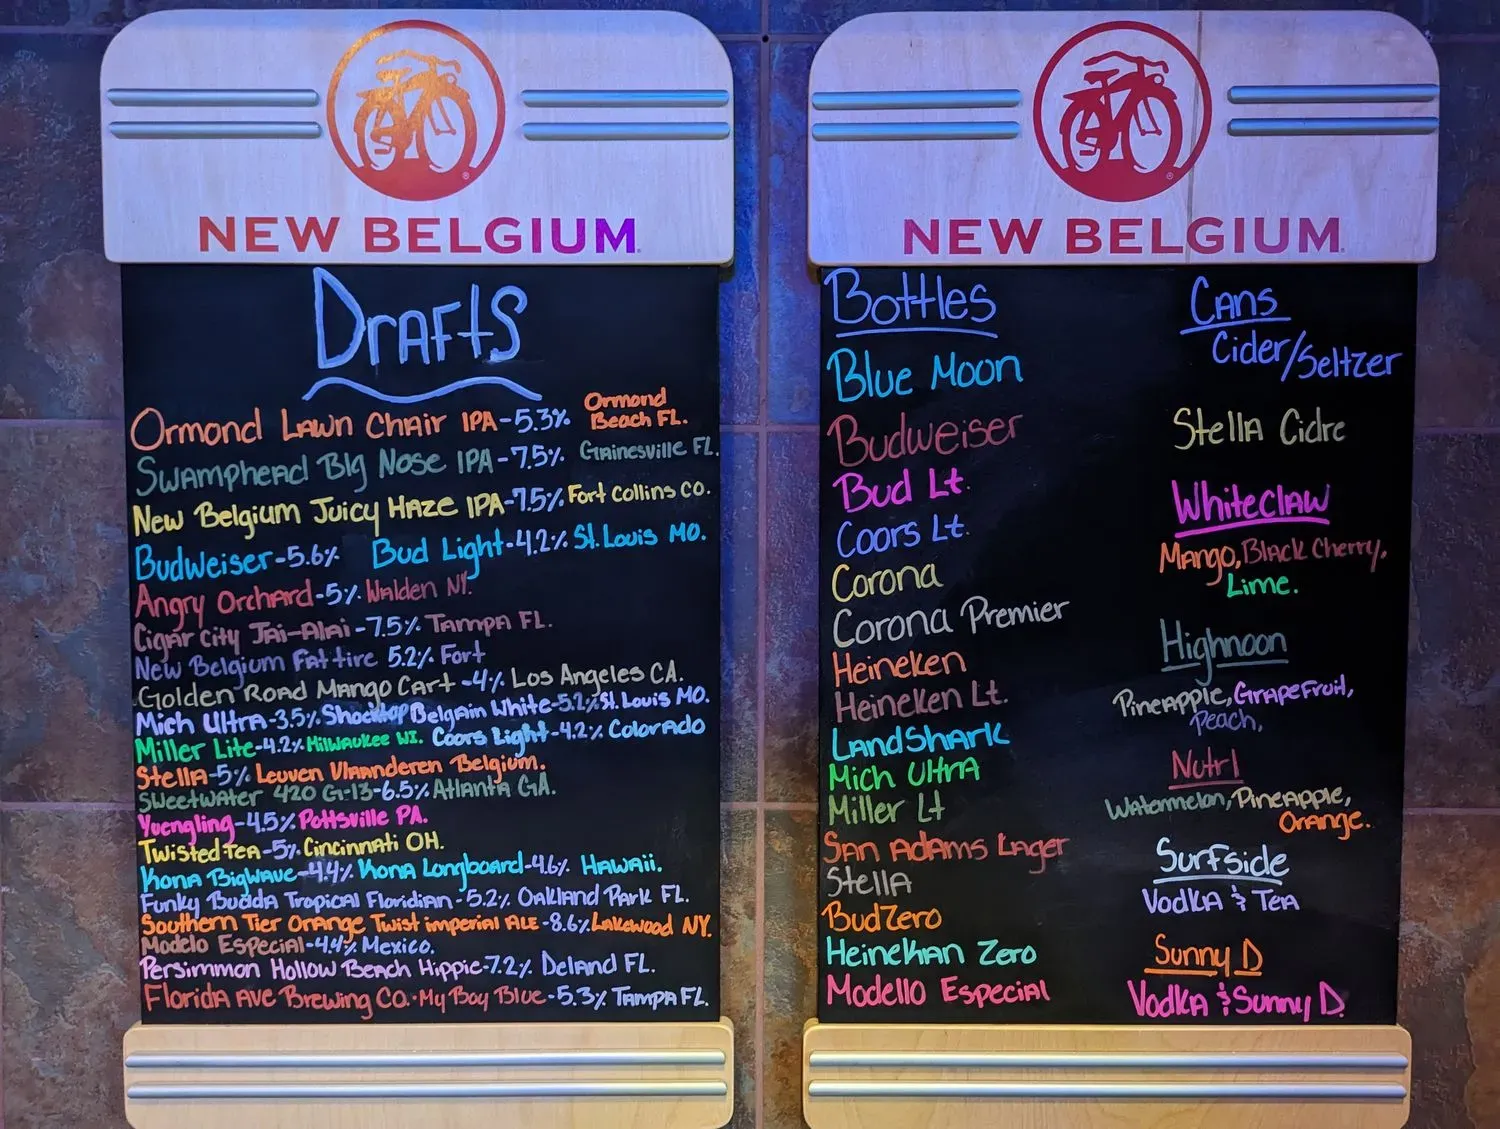 NEW BELGIUM
Drafts
Ormond Lawn Chair IPA-5.3% Ormond Beach FL.
Swamphead Big Nose IPA-7.5% Gainesville FL.
New Belgium Juicy Haze IPA-7.5% Fort Collins CO.
Budweiser-5.6% Bud Light-4.2% St. Louis MO.
Angry Orchard-5% Walden NY.
Cigar City Jai-Alai-7.5% Tampa FL.
New Belgium Fat tire 5.2% Fort
Golden Road Mango Cart-4% Los Angeles CA.
Mich Ultra-3.5% Shocktop Belgain White-5.2% St. Louis MO.
Miller Lite-4.2% Milwaukee WI. Coors Light-4.2% Colorado
Stella-5% Leuven Vlaanderen Belgium.
Sweetwater 420 G-13-6.5% Atlanta GA.
Yuengling-4.5% Pottsville PA.
Twisted Tea-5% Cincinnati OH.
Kona Bigwave-4.4% Kona Longboard-4.6% Hawaii.
Funky Budda Tropical Floridian-5.2% Oakland Park FL.
Southern Tier Orange Twist imperial Ale-8.6% Lakewood NY.
Modelo Especial-4.4% Mexico.
Persimmon Hollow Beach Hippie-7.2% Deland FL.
Florida Ave Brewing Co.-My Boy Blue-5.3% Tampa FL.
NEW BELGIUM
Bottles
Blue Moon
Budweiser
Bud Lt.
Coors Lt.
Corona
Corona Premier
Heineken
Heineken Lt.
LandShark
Mich Ultra
Miller Lt
San Adams Lager
Stella
BudZero
Heinekian Zero
Modello Especial
Cans
Cider/Seltzer
Stella Cidre
Whiteclaw
Mango, Black Cherry,
Lime.
Highnoon
Pineapple, Grapefruit,
Peach,
Nutrl
Watermelon, Pineapple,
Orange.
Surfside
Vodka & Tea
Sunny D
Vodka & Sunny D.